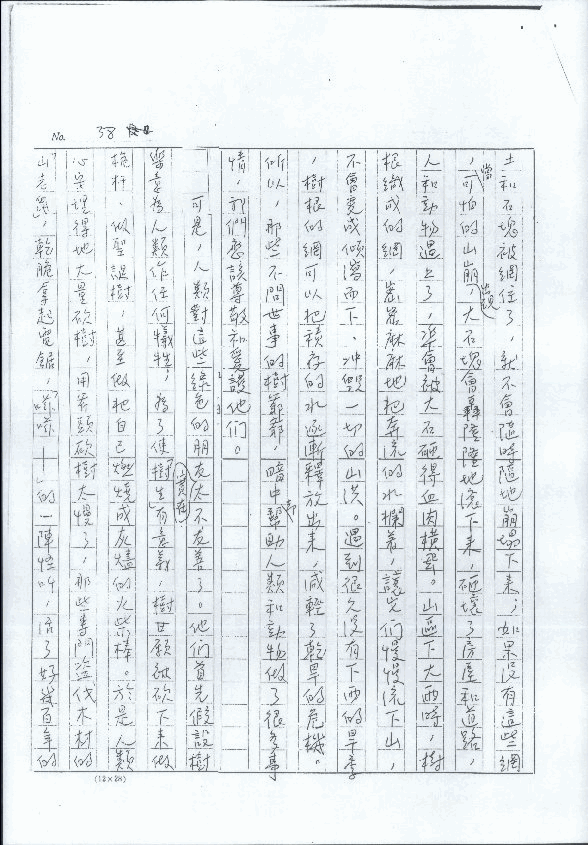 No. 38
土和石塊被網住了，就不會隨時隨地崩塌下來，如果沒有這些網
，可怕的山崩，大石塊會轟隆隆地滾下來，砸壞了房屋和道路，
當
出現
人和動物遇上了，準會被大石砸得血肉橫飛。山區下大雨時，樹
根織成的網，密密麻麻地把奔流的水攔著，讓它們慢慢流下山，
不會變成傾瀉而下、沖毀一切的山洪。遇到很久沒有下雨的旱季
，樹根的網可以把積存的水逐漸釋放出來，減輕了乾旱的危機。
所以，那些不問世事的樹爺爺，暗中幫助人類和動物做了很多事
情，我們應該尊敬和愛護他們。
可是，人類對這些綠色的朋友太不友善了。他們首先假設樹
樂意為人類作任何犧牲。為了使樹生有意義，樹甘願被砍下來做
桅杆、做聖誕樹，甚至做把自己燃燒成灰燼的火柴棒。於是人類
心安理得地大量砍樹，用斧頭砍樹太慢了，那些專門盜伐木材的
山老鼠，乾脆拿起電鋸，嘶嘶——的一陣怪叫，活了好幾百年的
(12×28)